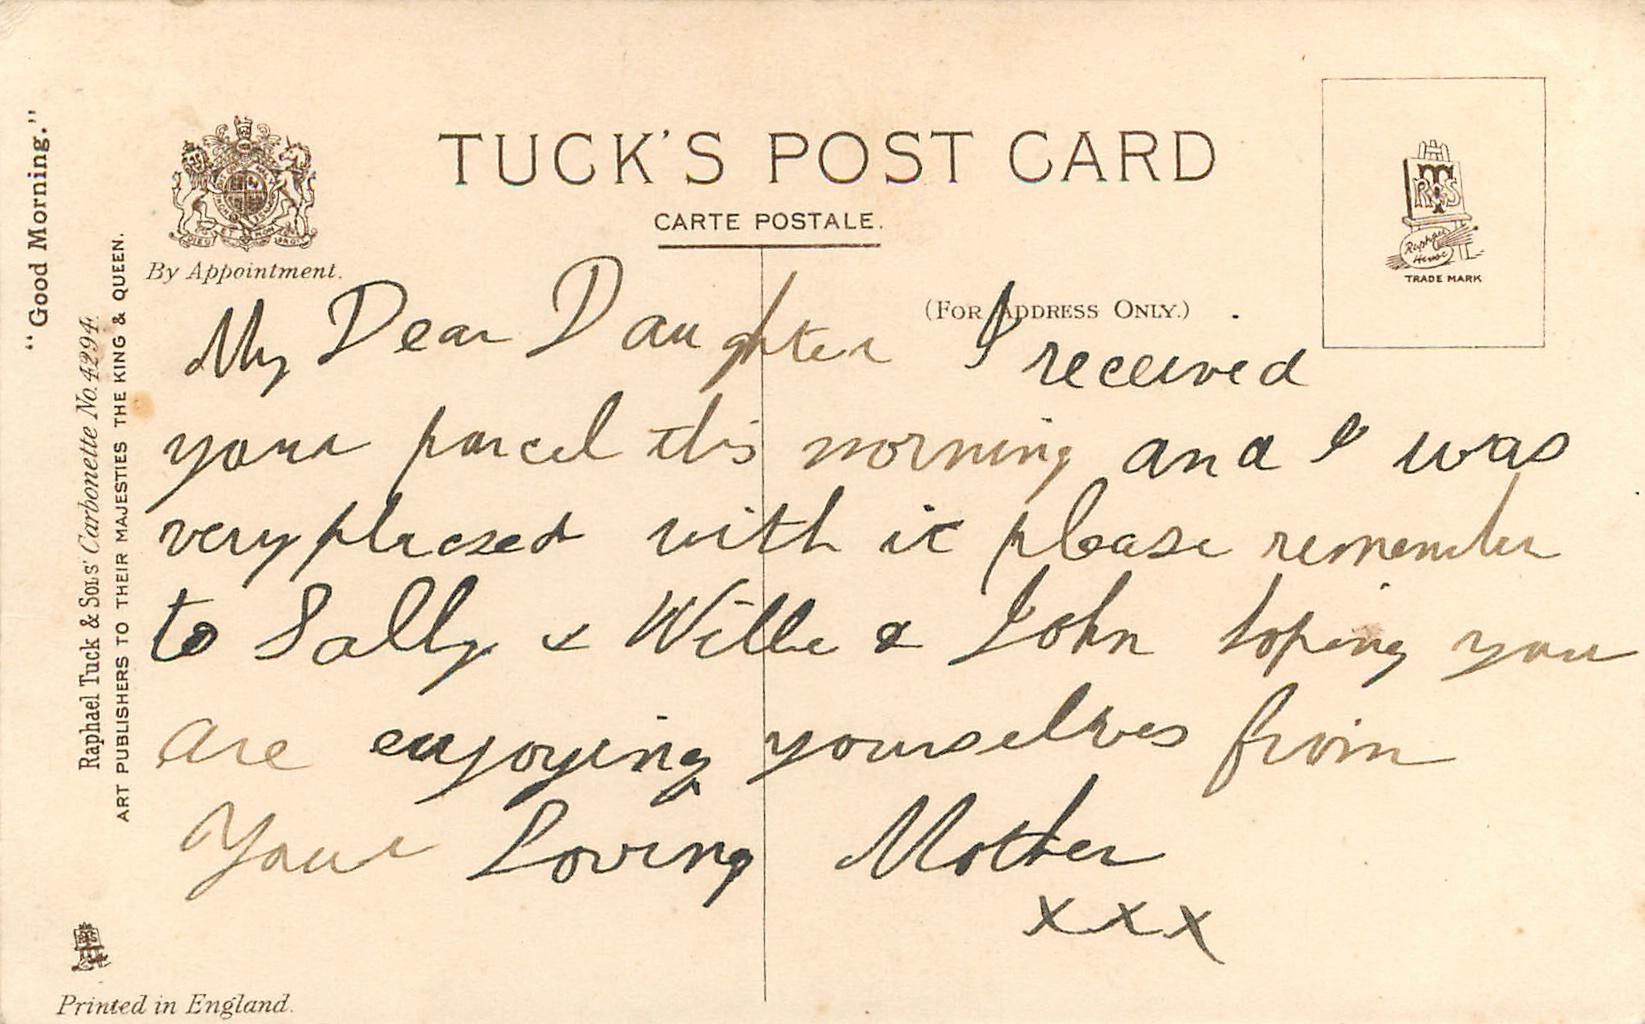 TUCK'S POST CARD
CARTE POSTALE.
By Appointment.
(FOR ADDRESS ONLY.)
TRADE MARK
"Good Morning."
Raphael Tuck & Sons' Carbonette No. 4294.
ART PUBLISHERS TO THEIR MAJESTIES THE KING & QUEEN.
My Dear Daughter I received
your parcel this morning and I was
very pleased with it please remember
to Sally & Willie & John hoping you
are enjoying yourselves from
Your Loving Mother
xxx
Printed in England.